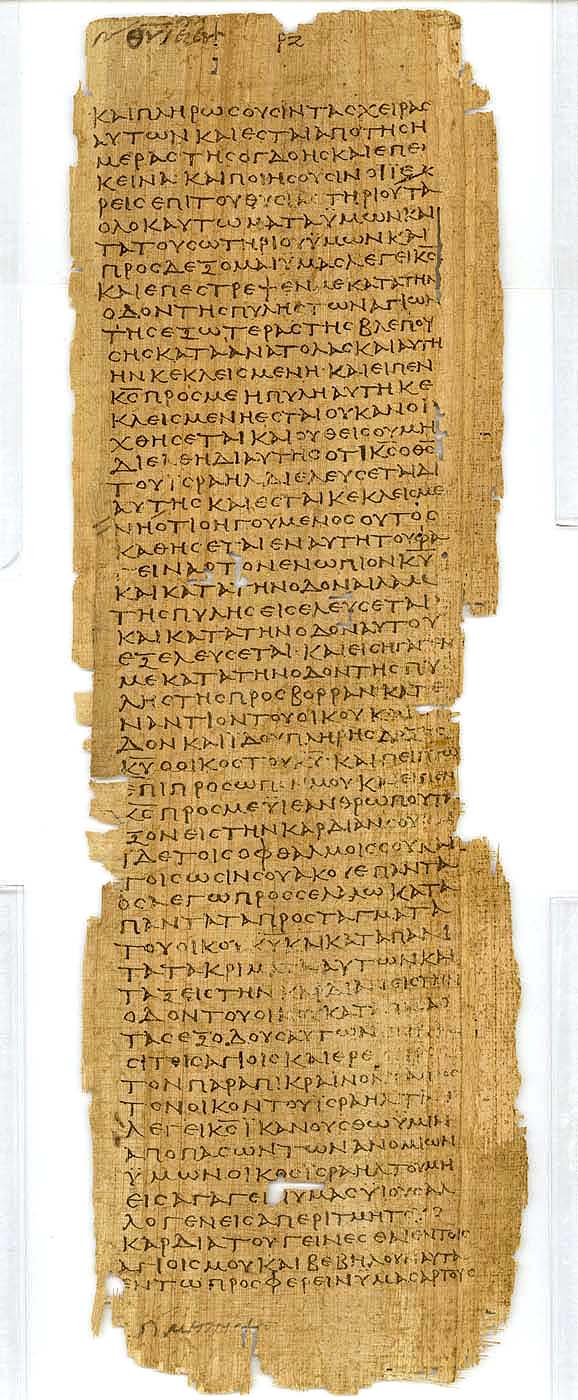 ΚΑΙΠΛΗΡΩϹΟΥϹΙΝΤΑϹΧΕΙΡΑϹ
ΑΥΤΩΝ ΚΑΙΕϹΤΑΙΑΠΟΤΗϹΗ
ΜΕΡΑϹ ΤΗϹΟΓΔΟΗϹ ΚΑΙΕΠΕΙ
ΚΕΙΝΑ ΚΑΙΠΟΙΗϹΟΥϹΙΝΟΙΙΕ
ΡΕΙϹ ΕΠΙΤΟΥΘΥϹΙΑϹΤΗΡΙΟΥΤΑ
ΟΛΟΚΑΥΤΩΜΑΤΑΫΜΩΝΚΑΙ
ΤΑΤΟΥϹΩΤΗΡΙΟΥΫΜΩΝΚΑΙ
ΠΡΟϹΔΕΞΟΜΑΙΥΜΑϹΛΕΓΕΙΚ̅Ϲ̅
ΚΑΙΕΠΕϹΤΡΕΨΕΝΜΕΚΑΤΑΤΗΝ
ΟΔΟΝΤΗϹΠΥΛΗϹΤΩΝΑΓΙΩΝ
ΤΗϹΕΞΩΤΕΡΑϹΤΗϹΒΛΕΠΟΥ
ϹΗϹΚΑΤΑΑΝΑΤΟΛΑϹΚΑΙΑΥΤΗ
ΗΝΚΕΚΛΕΙϹΜΕΝΗ·ΚΑΙΕΙΠΕΝ
Κ̅Ϲ̅ΠΡΟϹΜΕΗΠΥΛΗΑΥΤΗΚΕ
ΚΛΕΙϹΜΕΝΗΕϹΤΑΙΟΥΚΑΝΟΙ
ΧΘΗϹΕΤΑΙΚΑΙΟΥΘΕΙϹΟΥΜΗ
ΔΙΕΛΘΗΔΙΑΥΤΗϹΟΤΙΚ̅Ϲ̅ΟΘ̅Ϲ̅
ΤΟΥΪϹΡΑΗΛΔΙΕΛΕΥϹΕΤΑΙΔΙ
ΑΥΤΗϹ ΚΑΙΕϹΤΑΙΚΕΚΛΕΙϹΜΕ
ΝΗΟΤΙΟΗΓΟΥΜΕΝΟϹΟΥΤΟϹ
ΚΑΘΗϹΕΤΑΙΕΝΑΥΤΗΤΟΥΦΑ
ΕΙΝΑΡΤΟΝΕΝΩΠΙΟΝΚ̅Υ̅
ΚΑΙΚΑΤΑΤΗΝΟΔΟΝΑΙΛΑΜ
ΤΗϹΠΥΛΗϹΕΙϹΕΛΕΥϹΕΤΑΙ
ΚΑΙΚΑΤΑΤΗΝΟΔΟΝΑΥΤΟΥ
ΕΞΕΛΕΥϹΕΤΑΙ·ΚΑΙΕΙϹΗΓΑΓΕΝ
ΜΕΚΑΤΑΤΗΝΟΔΟΝΤΗϹΠΥ
ΛΗϹΤΗϹΠΡΟϹΒΟΡΡΑΝΚΑΤΕ
ΝΑΝΤΙΟΝΤΟΥΟΙΚΟΥ
ΔΟΝΚΑΙΙΔΟΥΠΛΗΡΗϹ
Κ̅Υ̅ΟΟΙΚΟϹΤΟΥ ΚΑΙΠΕΙΠΤΩ
ΕΠΙΠΡΟϹΩΠΟΝΜΟΥΚΑΙΕΙΠΕΝ
Κ̅Ϲ̅ΠΡΟϹΜΕΥΙΕΑΝΘΡΩΠΟΥΤΑ
ΞΟΝΕΙϹΤΗΝΚΑΡΔΙΑΝϹΟΥ
ΙΔΕΤΟΙϹΟΦΘΑΛΜΟΙϹϹΟΥΚΑΙ
ΤΟΙϹΩϹΙΝϹΟΥΑΚΟΥΕΠΑΝΤΑ
ΟϹΑΕΓΩΠΡΟϹϹΕΛΑΛΩΚΑΤΑ
ΠΑΝΤΑΤΑΠΡΟϹΤΑΓΜΑΤΑ
ΤΟΥΟΙΚΟΥ Κ̅Υ̅ΚΑΙΚΑΤΑΠΑΝ
ΤΑΤΑΚΡΙΜΑΤΑΑΥΤΩΝΚΑΙ
ΤΑΞΕΙϹΤΗΝΚΑΡΔΙΑΝ
ΟΔΟΝΤΟΥΟΙΚΟΥΚΑΤΑ
ΤΑϹΕΞΟΔΟΥϹΑΥΤΩΝ
ϹΙΤΟΙϹΑΓΙΟΙϹΚΑΙΕΡΕ
ΤΟΝΠΑΡΑΠΙΚΡΑΙΝΟΝ
ΤΟΝΟΙΚΟΝΤΟΥΪϹΡΑΗΛ
ΛΕΓΕΙΚ̅Ϲ̅ΪΚΑΝΟΥϹΘΩΥΜΙΝ
ΑΠΟΠΑϹΩΝΤΩΝΑΝΟΜΙΩΝ
ΫΜΩΝΟΙΚΟϹΪϹΡΑΗΛΤΟΥΜΗ
ΕΙϹΑΓΑΓΕΙΝΥΜΑϹΥΙΟΥϹΑΛ
ΛΟΓΕΝΕΙϹΑΠΕΡΙΤΜΗΤ
ΚΑΡΔΙΑΤΟΥΓΕΙΝΕϹΘΑΙΕΝΤΟΙϹ
ΑΓΙΟΙϹΜΟΥΚΑΙΒΕΒΗΛΟΥΝΑΥΤΑ
ΕΝΤΩΠΡΟϹΦΕΡΕΙΝΥΜΑϹΑΡΤΟΥϹ